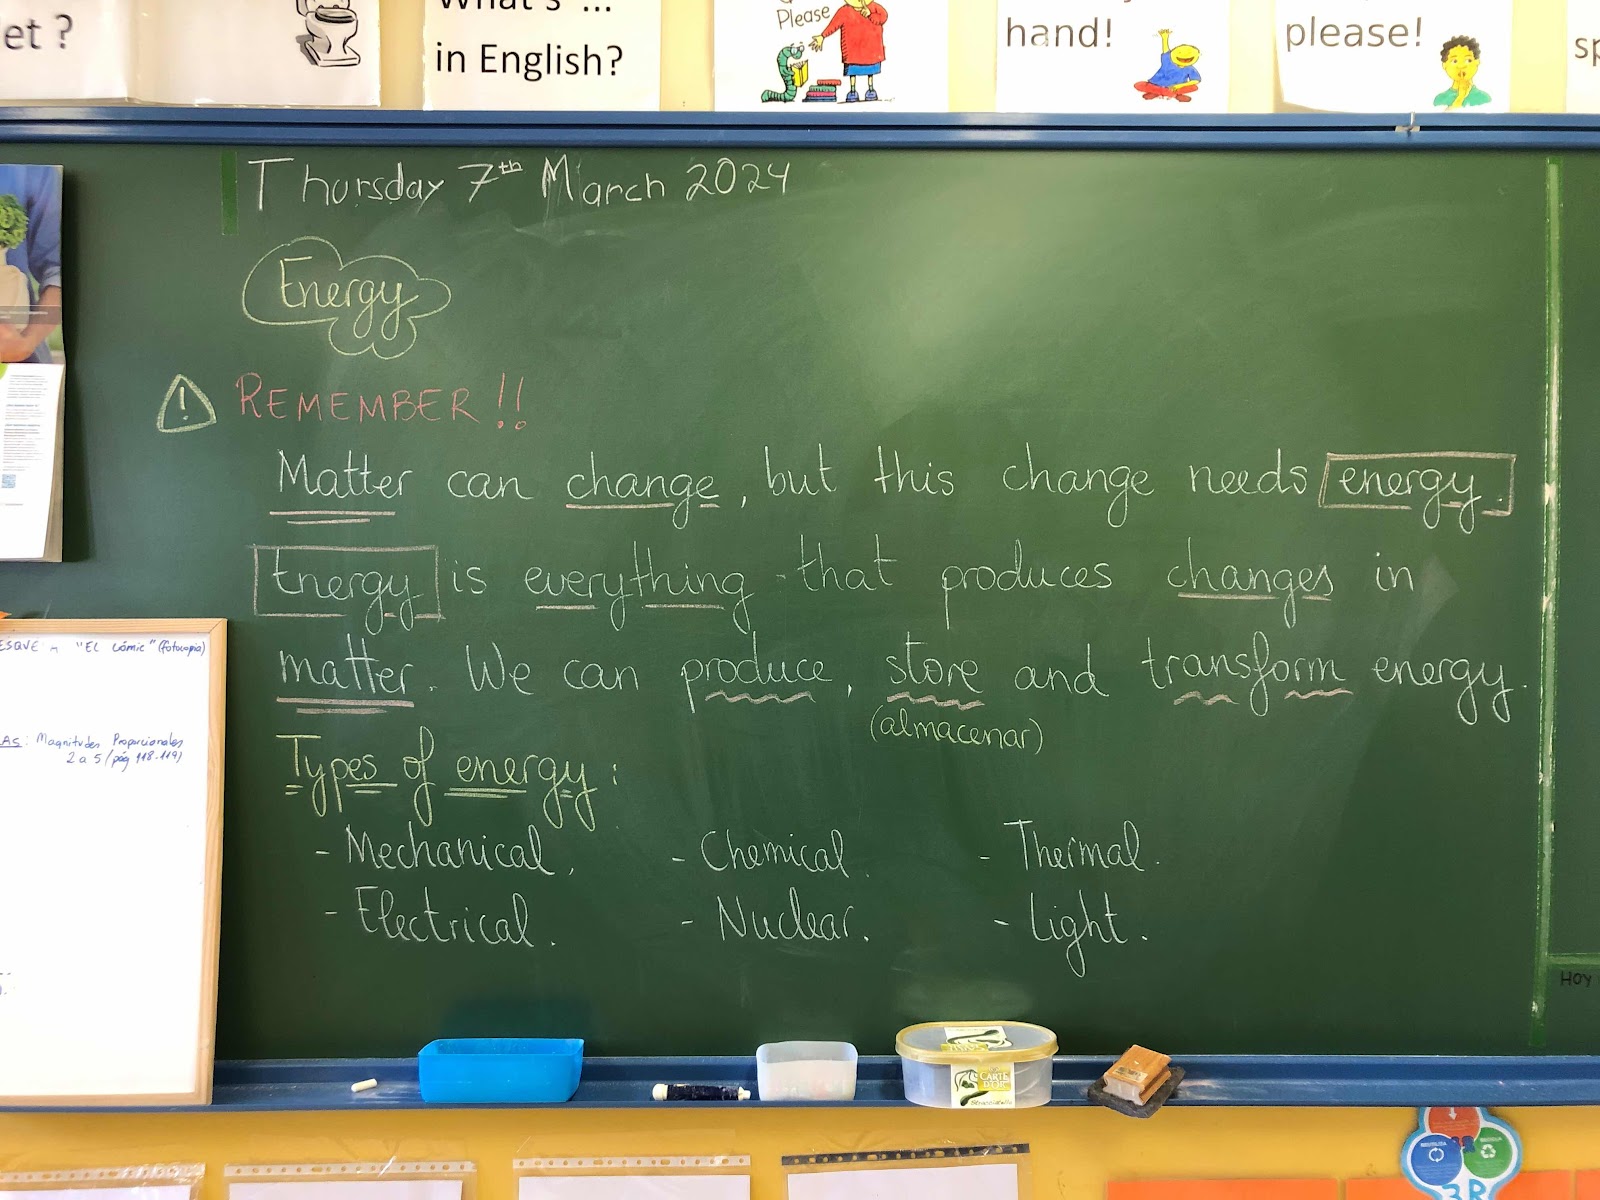 et ?
What's ...
in English?
Please
hand!
please!
Thursday 7th March 2024
Energy
! REMEMBER!!
Matter can change, but this change needs energy.
Energy is everything that produces changes in
matter. We can produce, store and transform energy.
(almacenar)
Types of energy:
- Mechanical. - Chemical. - Thermal.
- Electrical. - Nuclear. - Light.
"EL Cómic" (fotocopia)
AS: Magnitudes Proporcionales
2 a 5 (pág 118-119)
HOY
CARTE D'OR
Stracciatella
REUTILIZA
RECICLA
3R